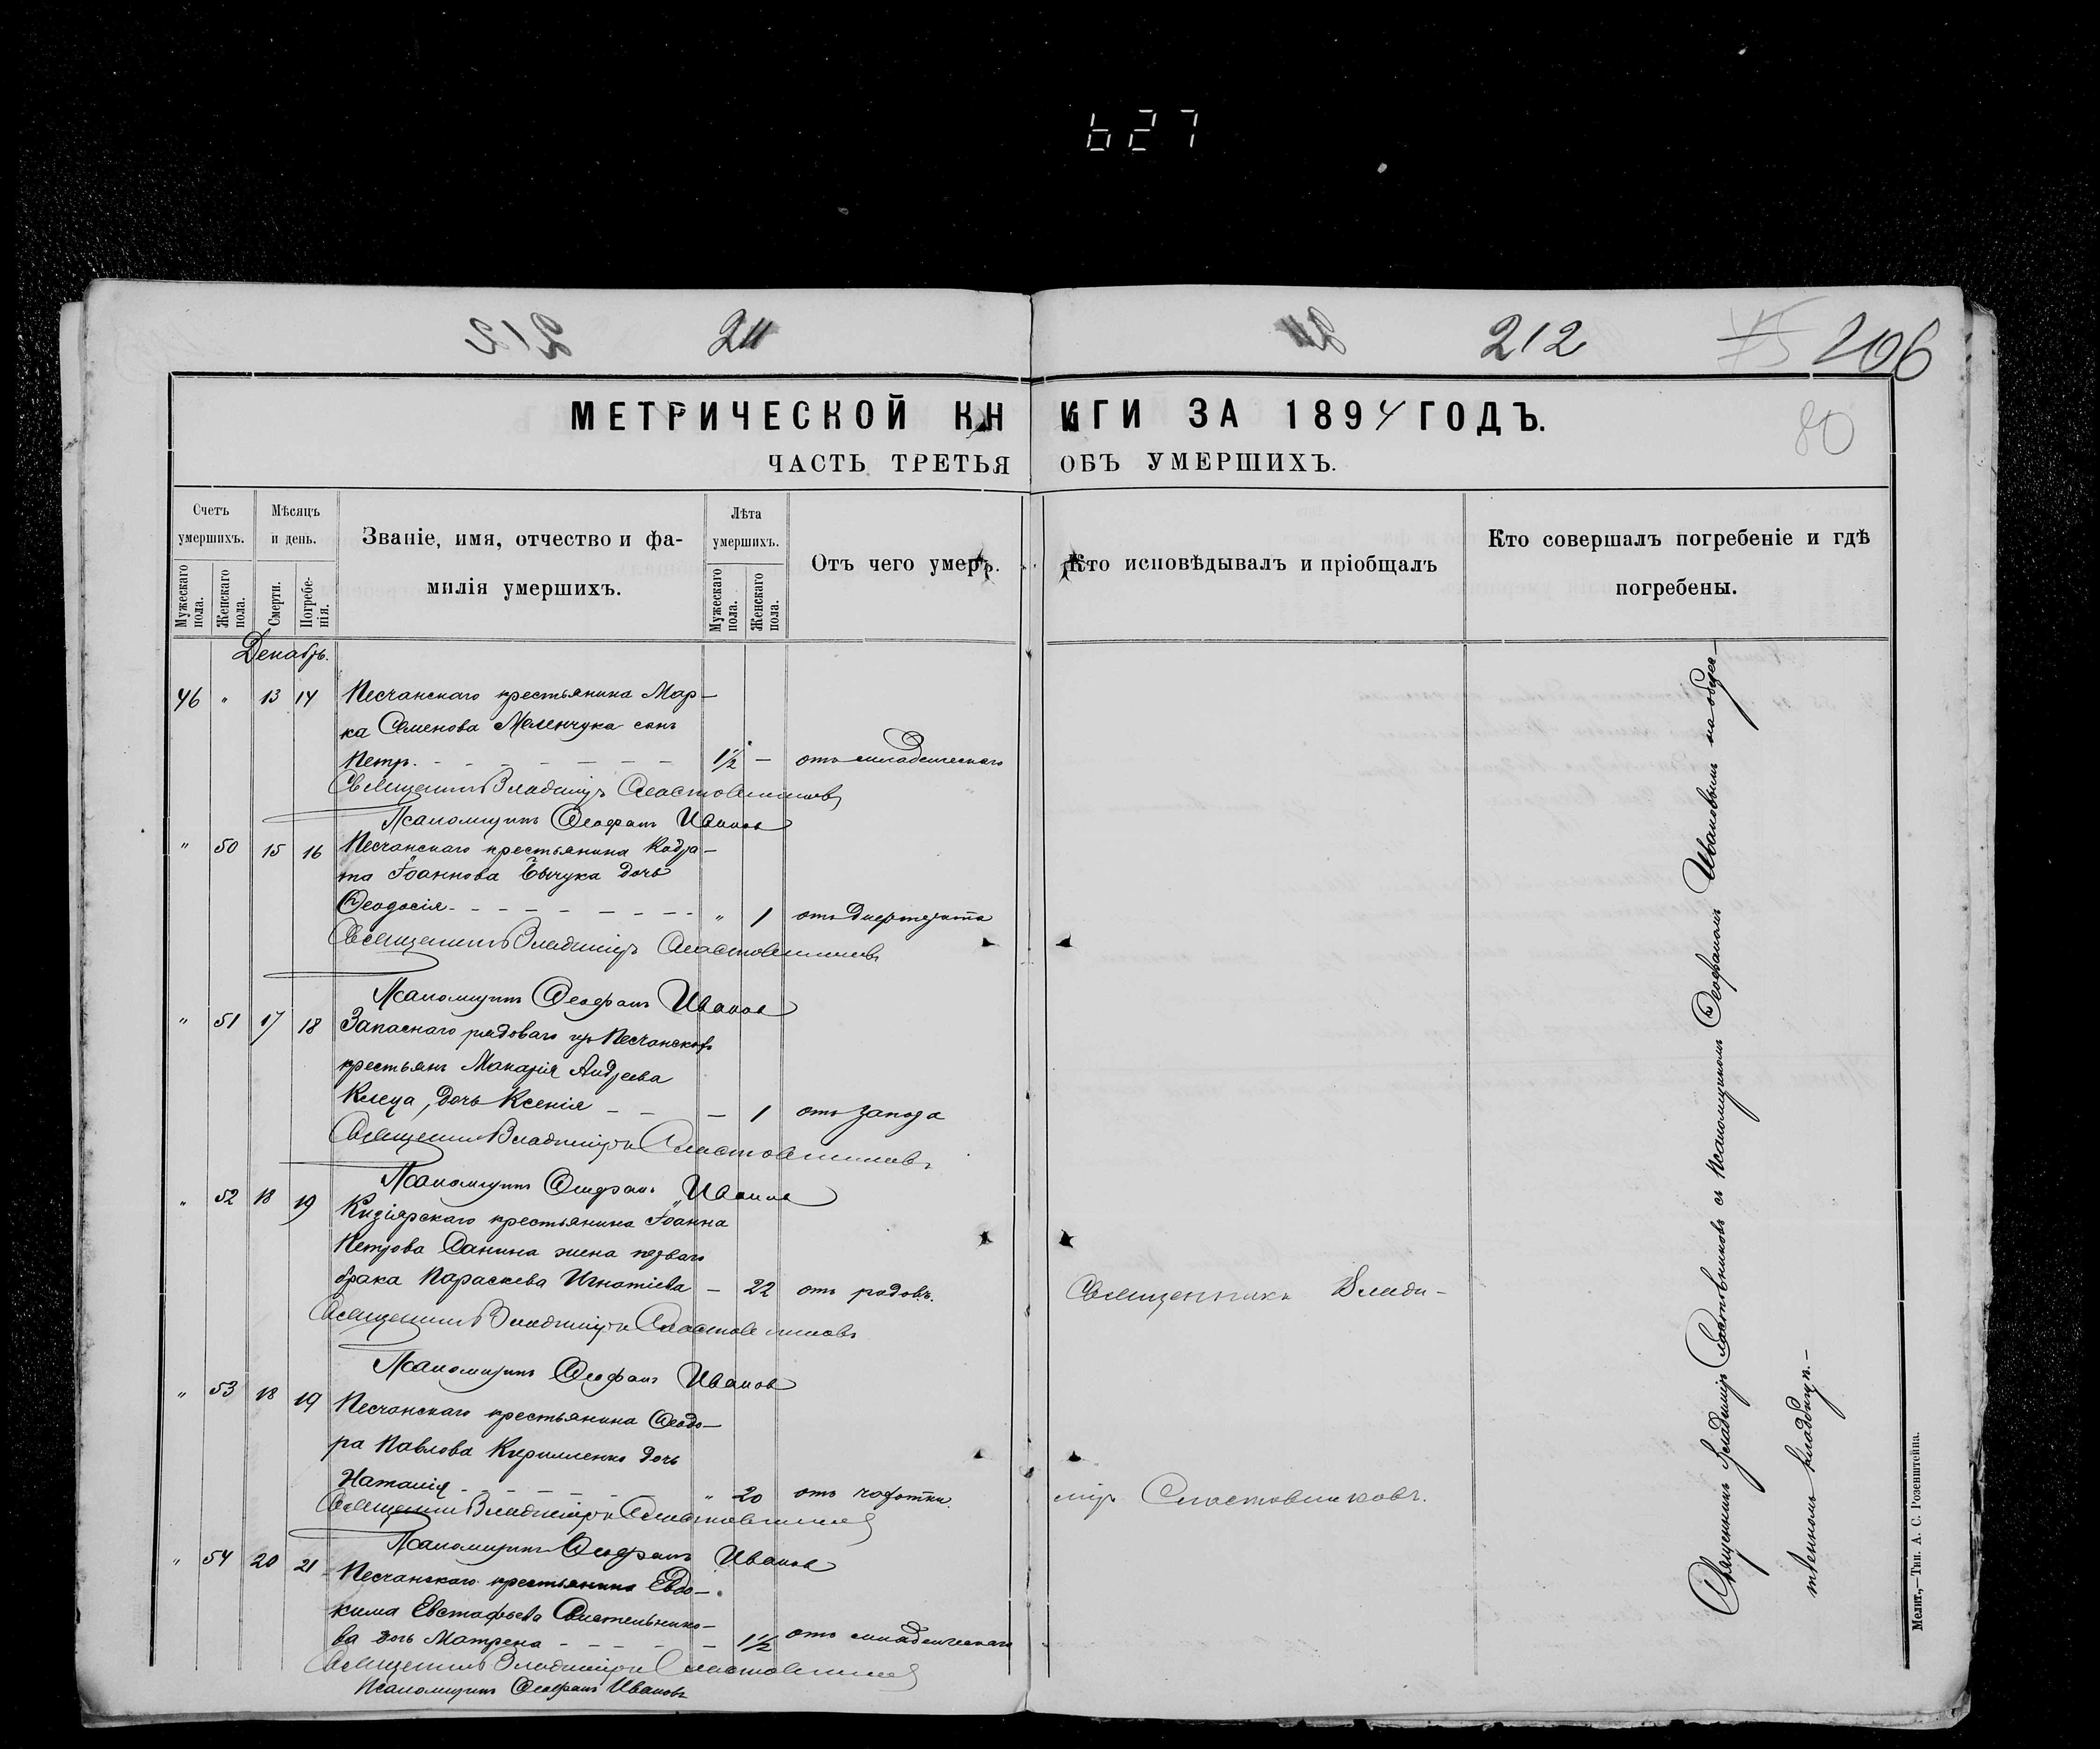 627
212
211
212
206
80
МЕТРИЧЕСКОЙ КНИГИ ЗА 1894 ГОДЪ.
ЧАСТЬ ТРЕТЬЯ ОБЪ УМЕРШИХЪ.
Счетъ умершихъ.
Мужескаго пола.
Женскаго пола.
Мѣсяцъ и день.
Смерти.
Погребе-
нія.
Званіе, имя, отчество и фа-
милія умершихъ.
Лѣта умершихъ.
Мужескаго пола.
Женскаго пола.
Отъ чего умеръ.
Кто исповѣдывалъ и пріобщалъ
Кто совершалъ погребеніе и гдѣ
погребены.
Декабрь.
46 " 13 14 Песчанскаго крестьянина Мар-
ка Семенова Меленчука сынъ
Петръ. 1½ — отъ младенческаго
Священникъ Владиміръ Сластовниковъ
Псаломщикъ Ѳеофанъ Ивановъ
" 50 15 16 Песчанскаго крестьянина Кодра-
та Іоаннова дочь
Ѳеодосія " 1 отъ дифтерита
Священникъ Владиміръ Сластовниковъ
Псаломщикъ Ѳеофанъ Ивановъ
" 51 17 18 Запаснаго рядоваго изъ Песчанскихъ
крестьянъ Макарія Андреева
дочь Ксенія — 1 отъ
Священникъ Владиміръ Сластовниковъ
Псаломщикъ Ѳеофанъ Ивановъ
" 52 18 19 Кизіярскаго крестьянина Іоанна
Петрова Санина жена перваго
брака Параскева Игнатіева — 22 отъ родовъ.
Священникъ Влади-
Священникъ Владиміръ Сластовниковъ
Псаломщикъ Ѳеофанъ Ивановъ
" 53 18 19 Песчанскаго крестьянина Ѳеодо-
ра Павлова Кириленко дочь
Наталія " 20 отъ чахотки.
міръ Сластовниковъ.
Священникъ Владиміръ Сластовниковъ
Псаломщикъ Ѳеофанъ Ивановъ
" 54 20 21 Песчанскаго крестьянина Евдо-
кима Евстафьева Свистельнико-
ва дочь Матрена — 1½ отъ младенческаго
Священникъ Владиміръ Сластовниковъ
Псаломщикъ Ѳеофанъ Ивановъ
Священникъ Владиміръ Сластовниковъ съ псаломщикомъ Ѳеофаномъ Ивановымъ на обще-
ственномъ кладбищѣ.—
Мелит.,—Тип. А. С. Розенштейна.